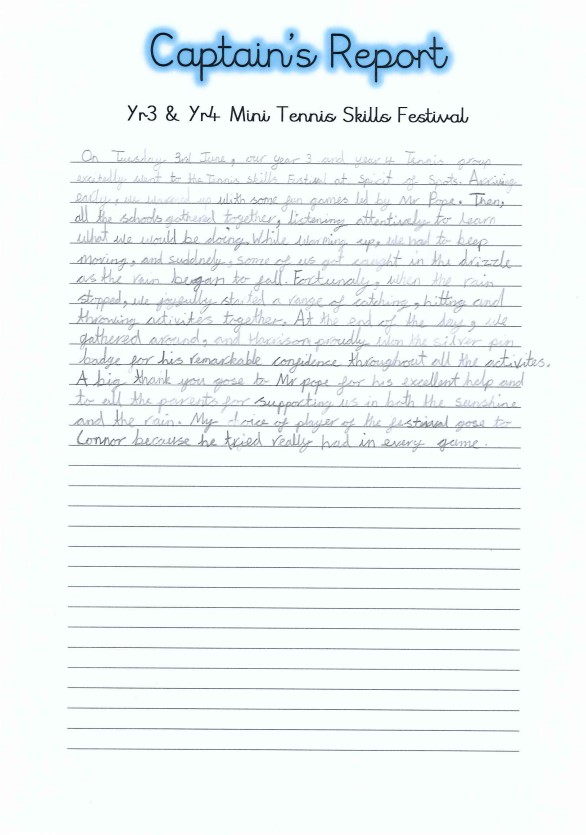 Captain's Report
Yr3 & Yr4 Mini Tennis Skills Festival
On Tuesday 3rd June, our year 3 and year 4 Tennis group
excitedly went to the Tennis skills Festival at Spirit of Spots. Arriving
early, we warmed up with some fun games led by Mr Pope. Then,
all the schools gathered together, listening attentively to learn
what we would be doing. While warming up, we had to keep
moving, and suddnely, some of us got caught in the drizzle
as the rain began to fall. Fortunaly, when the rain
stopped, we joyfully started a range of catching, hitting and
throwing activites together. At the end of the day, we
gathered around, and Harrison proudly won the silver pin
badge for his remarkable confidence throughout all the activites.
A big thank you gose to Mr pope for his excellent help and
to all the parents for supporting us in both the sunshine
and the rain. My of player of the festival gose to
Connor because he tried really had in every game.